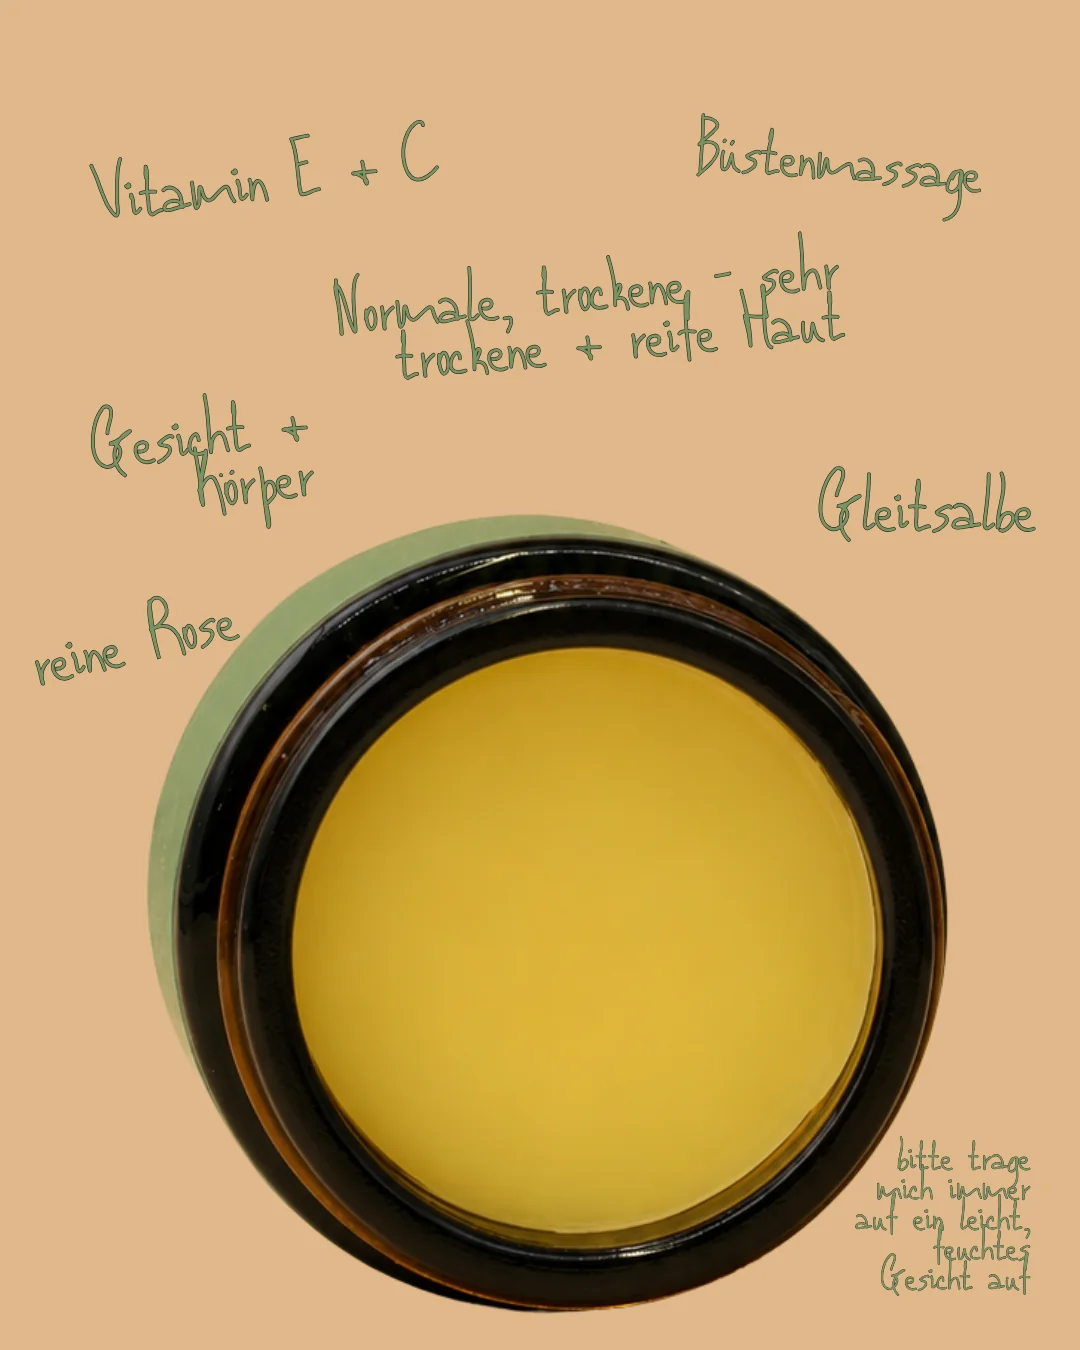 Vitamin E + C
Büstenmassage
Normale, trockene - sehr
trockene + reife Haut
Gesicht +
körper
Gleitsalbe
reine Rose
bitte trage
mich immer
auf ein leicht,
feuchtes
Gesicht auf